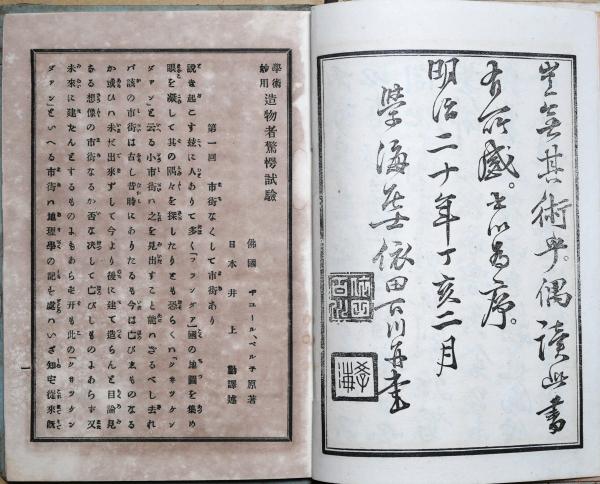 豈無其術乎。偶讀此書
有所感。書以為序。
明治二十年丁亥二月
學海居士依田百川
學海
學術
妙用
造物者驚愕試驗
佛國 ヂユールス、ベルネ原著
日本 井上 勤譯述
第一回 市街なくして市街あり
說き起こす玆に人ありて多く「フランダア」國の地圖を集め
眼を凝して其の隅々を探したりとも恐らくハ「クキツケン
ダアン」と云る小市街ハ之を見出すこと能ハざるべし去れ
バ該の市街は古し昔時にありたるも今は亡びゐものなる
か或ひハ未だ出來ずして今より後に建て造らんと目論見
ある想像の市街なるか否な決して亡びしものよあらず又
未來に建たんとするものよあらず开も此の「クキツケン
ダアン」といへる市街ハ地理學の記を處ハいざ知ず從來旣
一